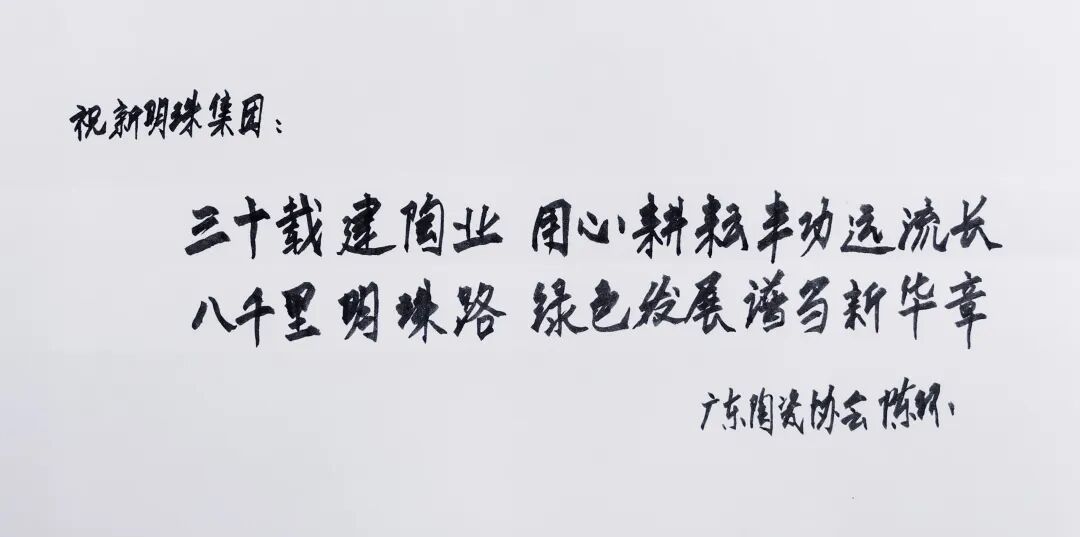 祝新明珠集团：
三十载建陶业 用心耕耘丰功远流长
八千里明珠路 绿色发展谱写新华章
广东陶瓷协会 陈环